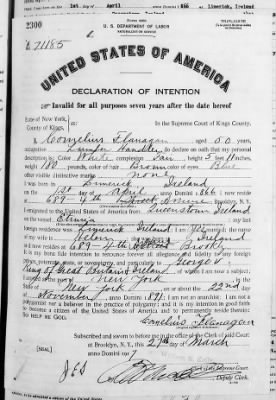 1st day of April anno Domini 866 in Limerick, Ireland
2300
U. S. DEPARTMENT OF LABOR
NATURALIZATION SERVICE
71185
UNITED STATES OF AMERICA
DECLARATION OF INTENTION
Invalid for all purposes seven years after the date hereof
State of New York,
County of Kings,
In the Supreme Court of Kings County.
I, Cornelius Flanagan aged 50 years,
occupation Lumber Handler, do declare on oath that my personal
description is: Color White, complexion Fair, height 5 feet 11 inches,
weight 160 pounds, color of hair Brown, color of eyes Blue
other visible distinctive marks none
I was born in Limerick Ireland
on the 1st day of April, anno Domini 1866; I now reside
at 689-4th
I emigrated to the United States of America from Queenstown Ireland
on the vessel Etruria
foreign residence was Limerick Ireland; I am married; the name
of my wife is Helen; she was born in Ireland
and now resides at 689-4th
It is my bona fide intention to renounce forever all allegiance and fidelity to any foreign
prince, potentate, state, or sovereignty, and particularly to George V
King of Great Britain & Ireland, of whom I am now a subject;
I arrived at the port of New York, in the
State of New York, on or about the 22nd day
of November, anno Domini 1891; I am not an anarchist; I am not a
polygamist nor a believer in the practice of polygamy; and it is my intention in good faith
to become a citizen of the United States of America and to permanently reside therein:
SO HELP ME GOD.
Cornelius Flanagan
Subscribed and sworn to before me in the office of the Clerk of said Court
at Brooklyn, N. Y., this 29th day of March
anno Domini 1917
[SEAL]